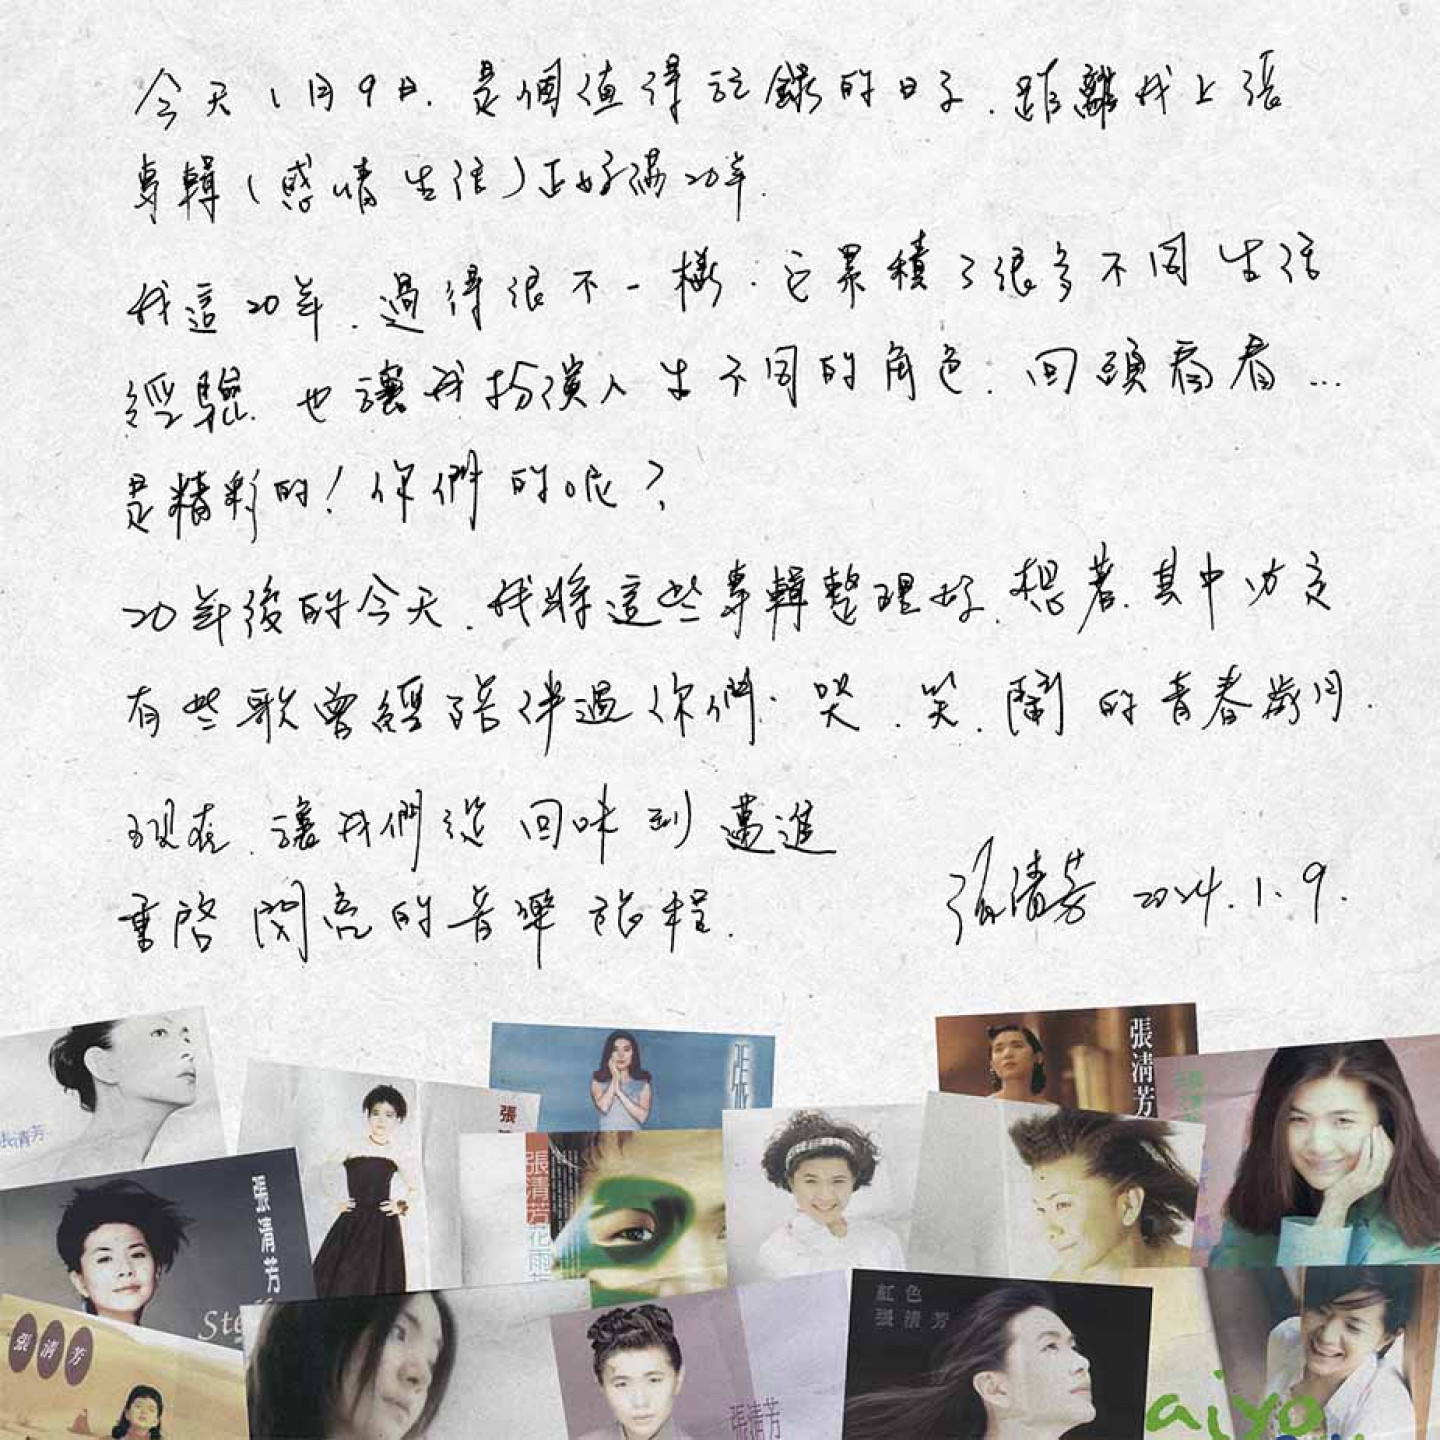 今天1月9日．是個值得記錄的日子．距離我上張
專輯（感情生活）正好滿20年．
我這20年．過得很不一樣．它累積了很多不同生活
經驗．也讓我扮演人生不同的角色．回頭看看...
是精彩的！你們的呢？
20年後的今天．我將這些專輯整理好．想著．其中必定
有些歌曾經陪伴過你們．哭．笑．鬧的青春歲月．
現在．讓我們從回味到邁進
重啓閃亮的音樂旅程．
張清芳 2024.1.9.
張清芳
張清芳
張
張
張清芳花雨
張清芳
張清芳
Ste
張清芳
紅色
張清芳
aiyo